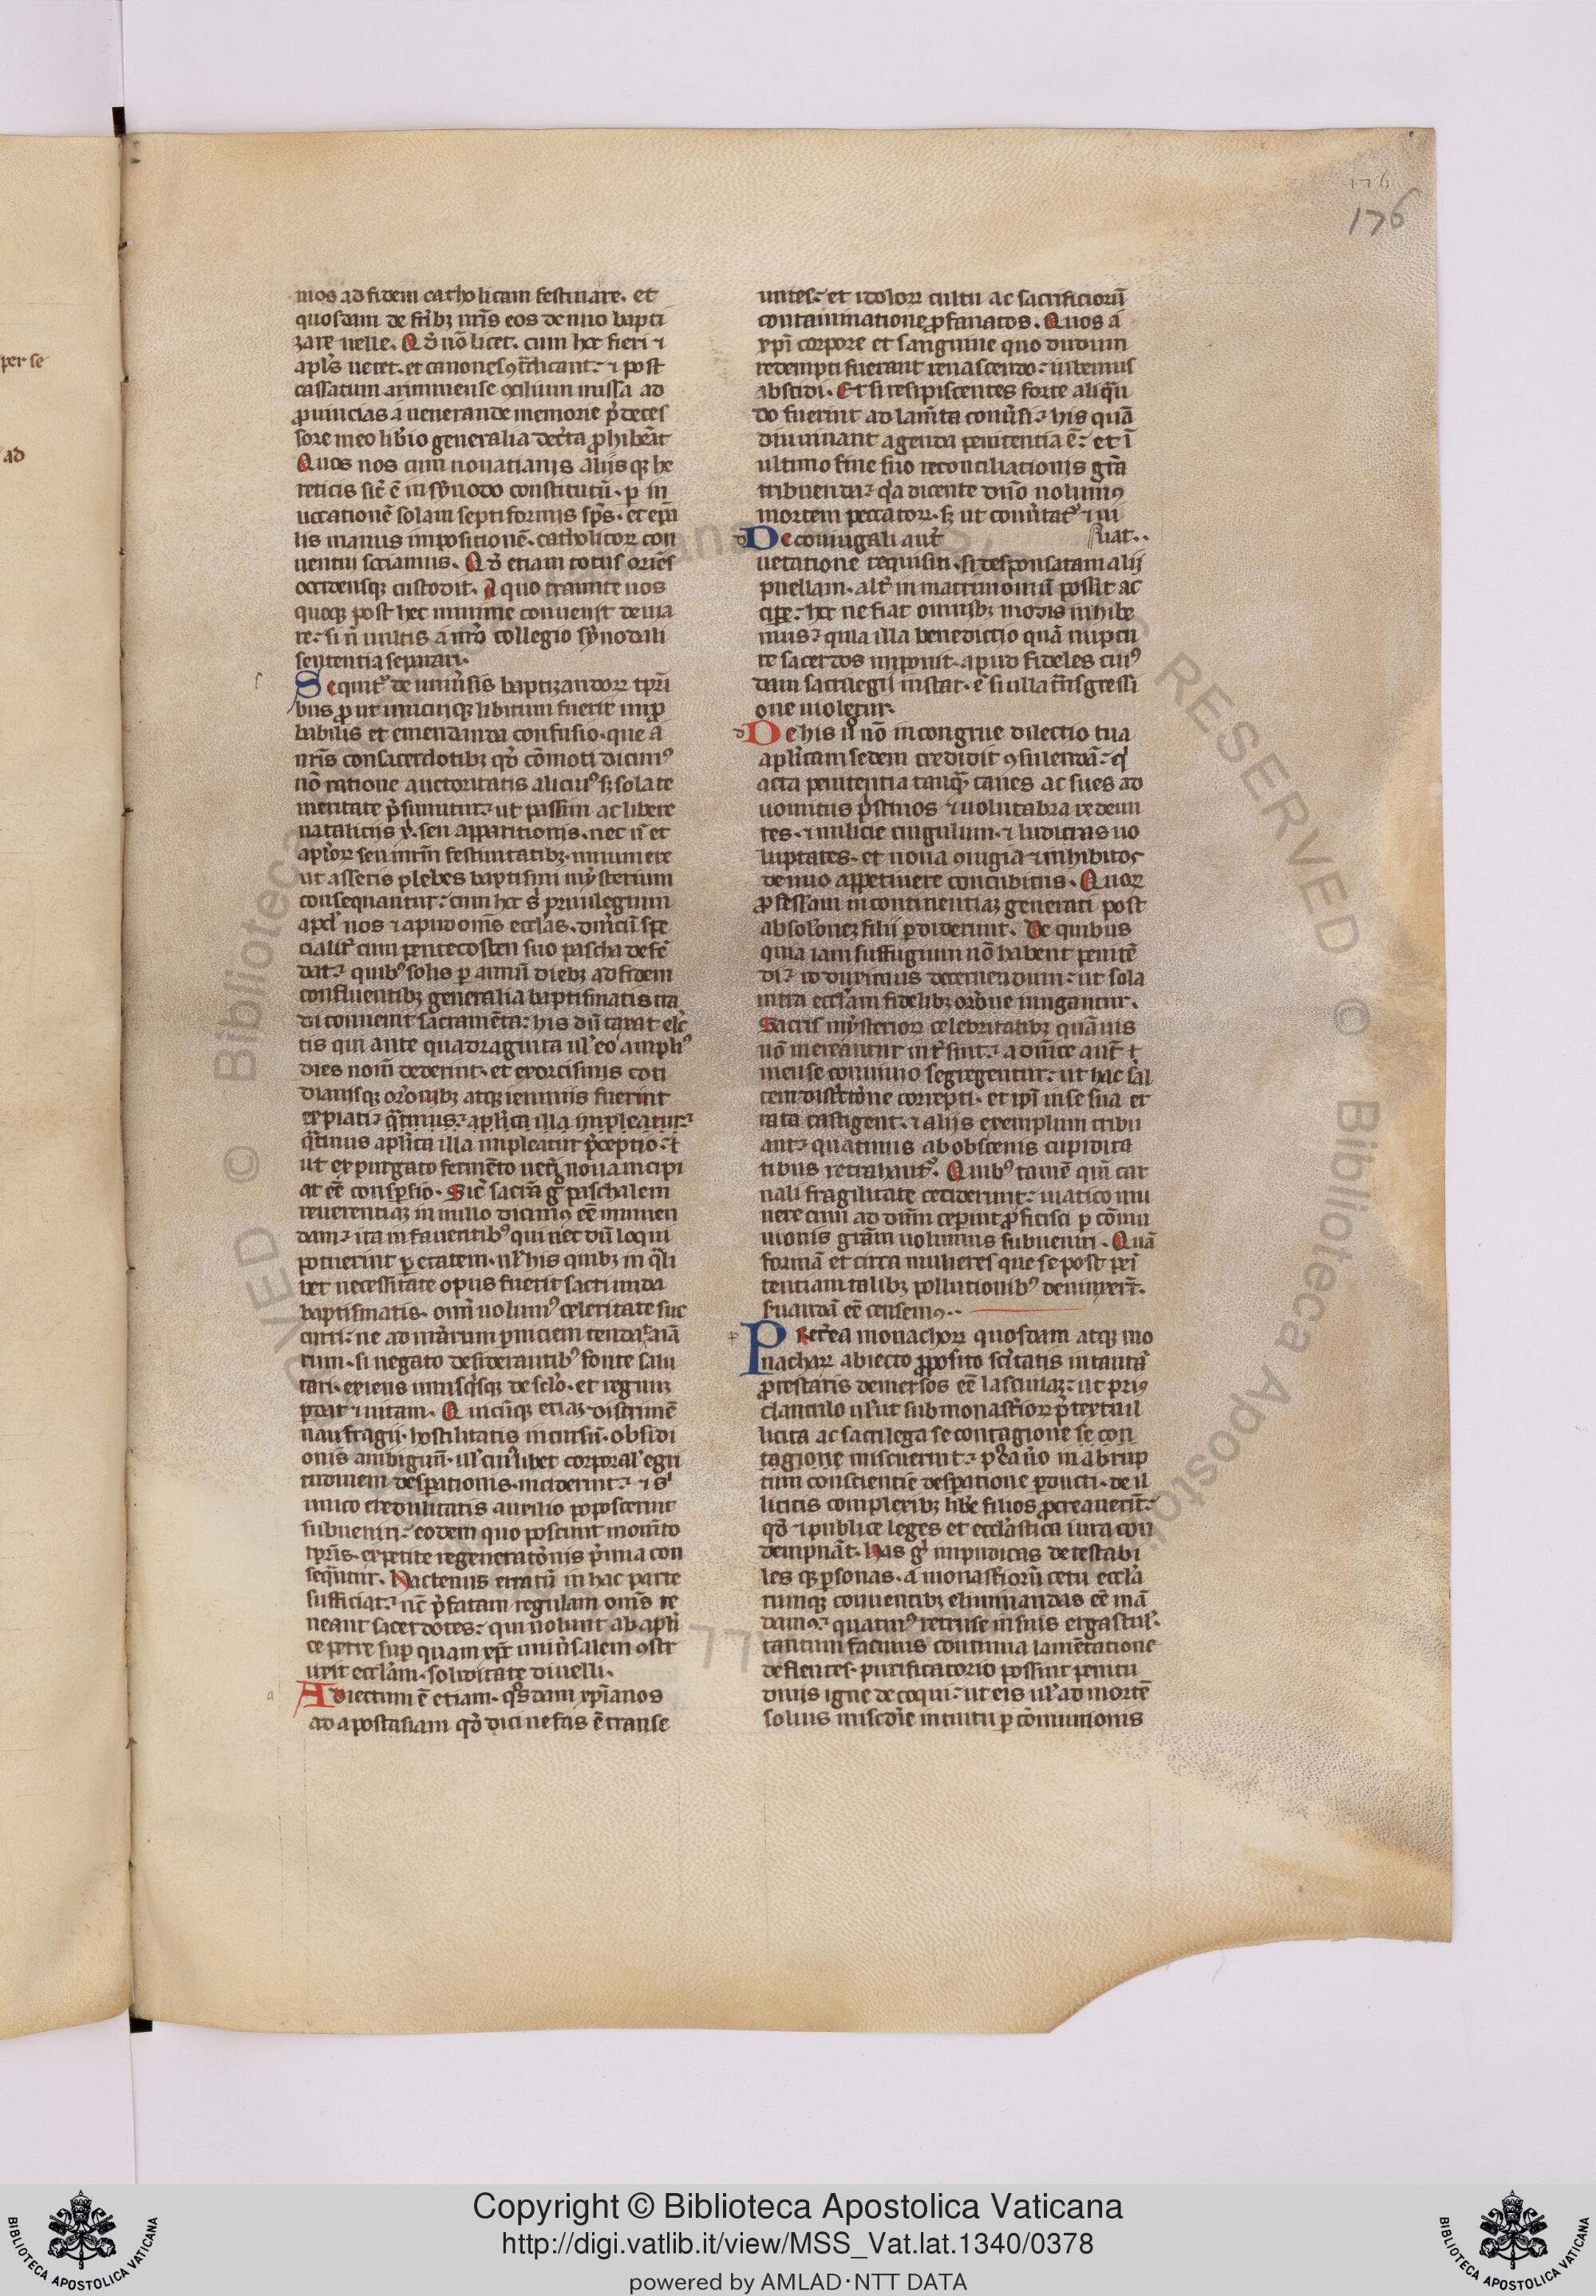 176
176
per se
ad
mos ad fidem catholicam festinare. et
quosdam de fr̄ibꝫ nr̄is eos denuo bapti
zare uelle. Qd̓ nō licet. cum hec fieri ⁊
apl̓s uetet. et canones ꝯtͣdicant: ⁊ post
cassatum ariminense ꝯcilium missa ad
ꝓuincias a uenerande memorie p̓deces
sore meo lib̓io generalia dec̓ta ꝓhibeāt
Quos nos cum nouatianis alijsqꝫ he
reticis sic̓ ē in synodo constitutū. ꝑ in
uocationē solam septiformis sp̄s. et ep̄a
lis manus impositionē. catholicoꝝ con
uentui sociamus. Qd̓ etiam totus oriēs
occidensqꝫ custodit. A quo tramite uos
quoqꝫ post hec minime conuenit deuia
re: si n̄ uultis a nr̄o collegio synodali
sententia separari.
Sequit᷑ de uniu̓sis baptizandoꝝ tp̄ri
bus ꝓ ut unicuiqꝫ libitum fuerit inꝓ
babilis et emendanda confusio. que a
nr̄is consacerdotibꝫ qd̓ cōmoti dicimꝰ
nō ratione auctoritatis alicuiꝰ sꝫ sola te
meritate p̓sumitur: ut passim ac libere
natalicijs x̓. seu apparitionis. nec n̄ et
apl̓oꝝ seu mr̄m festiuitatibꝫ. innumere
ut asseris plebes baptismi mysterium
consequantur: cum hec s' priuilegium
apd̓ nos ⁊ apud oms̄ eccl̓as. dn̄icū spe
cialit̓ cum pentecosten suo pascha defē
dat: quibꝰ solis ꝑ annū diebꝫ ad fidem
confluentibꝫ generalia baptismatis tra
di conuenit sacramēta: his dū taxat elc̄
tis qui ante quadraginta ul̓ eo ampliꝰ
dies nom̄ dederint. et exorcismis coti
dianisqꝫ or̓onibꝫ atqꝫ ieiuniis fuerint
expiati: qͣtinus: apl̓ica illa impleatur:
qͣtinus apl̓ica illa impleatur p̓ceptio: ⁊
ut expurgato fermēto uet̓i noua incipi
at eē consp̓sio. Sic̓ sacrā g̓ paschalem
reuerentiaꝫ in nullo dicimꝰ eē minuen
dam: ita infantibꝰ qui nec dū loqui
potuerint ꝑ etatem. ul̓ his quibꝫ in qͣli
bet necessitate opus fuerit sacri unda
baptismatis. omī uolumꝰ celeritate suc
curri: ne ad nr̄arum ꝑniciem tendat aīa
rum. si negato desiderantibꝰ fonte salu
tari. exiens unusq̓sqꝫ de scl̓o. et regnuꝫ
ꝑdat ⁊ uitam. Quicūqꝫ etiaꝫ discrimē
naufragij. hostilitatis incursū. obsidi
onis ambiguū. ul̓ cuiꝰlibet corporal̓ egri
tudinem desꝑationis. inciderint: ⁊ s'
unico credulitatis auxilio poposcerint
subueniri: eodem quo poscunt mom̄to
tp̄ris. expetite regeneratōnis p̓mia con
seqͣntur. Hactenus erratū in hac parte
sufficiat: nc̄ p̓fatam regulam oms̄ te
neant sacerdotes: qui nolunt ab apl̓i
ce petre suꝑ quam xp̄c uniu̓salem ꝯstr
uxit eccl̓am. soliditate diuelli.
Adiectum ē etiam. qͦsdam xp̄ianos
ad apostasiam qd̓ dici nefas ē transe
untes: et idoloꝝ cultu ac sacrificioꝝ
contaminatione ꝓfanatos. Quos a
xp̄i corpore et sanguine quo dudum
redempti fuerant renascendo: iubemus
abscidi. Et si resipiscentes forte aliqn̄
do fuerint ad lam̄ta conu̓si: his quā
diu uiuant agenda penitentia ē: et ī
ultimo fine suo reconciliationis gr̄a
tribuenda: qͣa dicente dn̄o nolumꝰ
mortem peccatoꝝ. sꝫ ut conu̓tat᷑ ⁊ ui
De coniugali aut̓ uat..
uelatione requisiti. si desponsatam alij
puellam. alt̓ in matrimoniū possit ac
ciꝑe: hec ne fiat omnibꝫ modis inhibe
mus: quia illa benedictio quā nuptu
re sacerdos imponit. apud fideles cuiꝰ
dam sacrilegij instar. ē si ulla trāsgressi
one uioletur.
De his n̄ nō incongrue dilectio tua
apl̓icam sedem credidit ꝯsulendā: q'
acta penitentia tanqͣ canes ac sues ad
uomitus p̓stinos ⁊ uolutabra redeun
tes. ⁊ milicie cingulum. ⁊ ludicras uo
luptates. et noua ꝯiugia ⁊ inhibitos
denuo appetiuere concubitus. Quoꝝ
ꝓfessam incontinentiaꝫ generati post
absol̓oneꝫ filii ꝓdiderunt. De quibus
quia iam suffugium nō habent penitē
di: id duximus decernendum: ut sola
intra eccl̓am fidelibꝫ or̓one iungantur.
Sacris mysterioꝝ celebritatibꝫ quāuis
nō mereantur int̓sint: a dn̄ice aut̓ ⁊
mense conuiuio segregentur: ut hac sal
tem discͥctōne correpti. et ipī in se sua er
rata castigent. ⁊ alijs exemplum tribu
ant: quatinus ab obscenis cupidita
tibus retrahant᷑. Quibꝰ tamē qm̄ car
nali fragilitate ceciderunt: uiatico mu
nere cum ad dn̄m ceperint ꝓficisci ꝑ cōmu
nionis grām uolumus subueniri. Quā
formā et circa mulieres que se post peni
tentiam talibꝫ pollutionibꝰ deuinxer̄t.
seruandā eē censemꝰ..
Preterea monachoꝝ quosdam atqꝫ mo
nachaꝝ abiecto ꝓposito sc̄itatis in tantā
ꝓtestatis demersos eē lasciuiaꝫ: ut priꝰ
clanculo ul̓ ut sub monast̓ioꝝ p̓textu il
licita ac sacrilega se contagione se con
tagione miscuerint: p̓ea u̓o in abrup
tum conscientie desꝑatione ꝑducti. de il
licitis complexibꝫ libe filios ꝓcreauerīt:
qd̓ ⁊ publice leges et eccl̓astica iura con
dempnāt. Has g̓ impudicas detestabi
lesqꝫ ꝑsonas. a monast̓ioꝝ cetu eccl̓a
rumqꝫ conuentibꝫ eliminandas eē mā
damꝰ: quatinꝰ retruse in suis ergastul̓.
tantum facinus continua lamētatione
deflentes. purificatorio possint penitu
dinis igne decoqui: ut eis ul̓ ad mortē
solius misc̓die intuitu ꝑ cōmunionis
Copyright © Biblioteca Apostolica Vaticana
http://digi.vatlib.it/view/MSS_Vat.lat.1340/0378
powered by AMLAD·NTT DATA
BIBLIOTECA APOSTOLICA VATICANA
BIBLIOTECA APOSTOLICA VATICANA